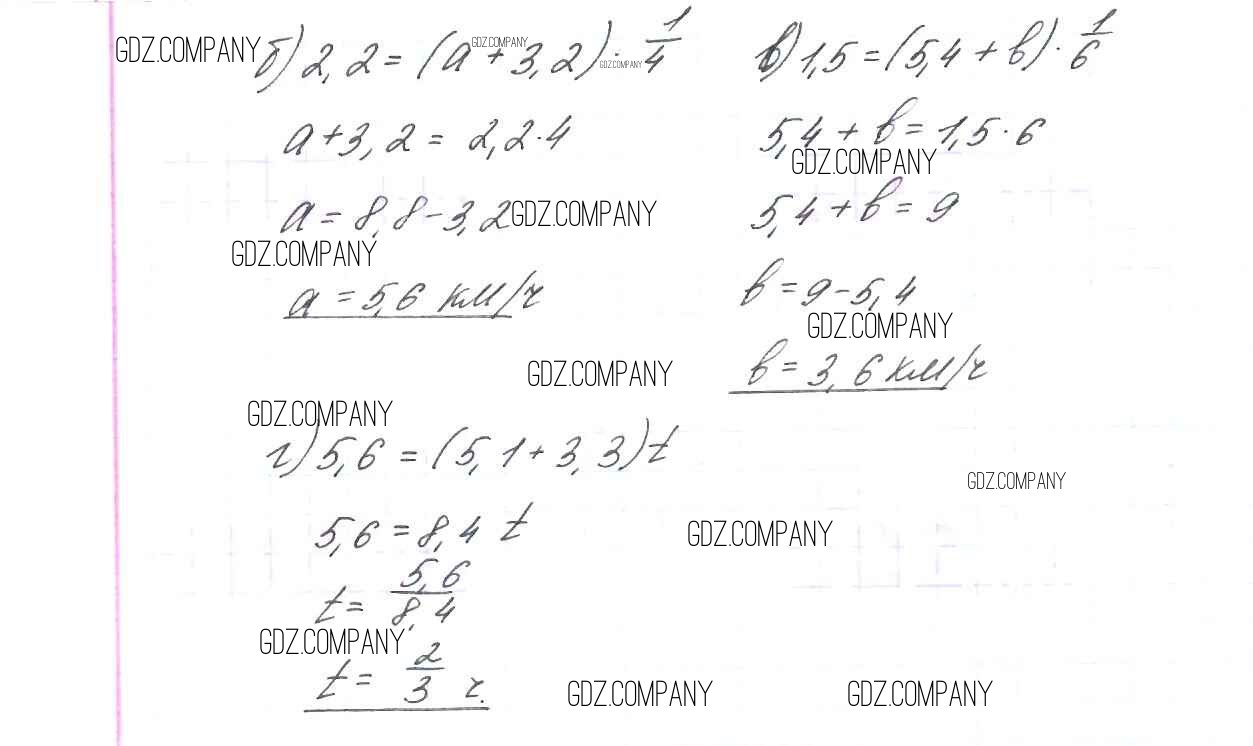 GDZ.COMPANY
б) 2,2 = (a + 3,2) · 1/4
GDZ.COMPANY
GDZ.COMPANY
a + 3,2 = 2,2 · 4
a = 8,8 - 3,2
GDZ.COMPANY
GDZ.COMPANY
a = 5,6 км/ч
в) 1,5 = (5,4 + b) · 1/6
5,4 + b = 1,5 · 6
GDZ.COMPANY
5,4 + b = 9
b = 9 - 5,4
GDZ.COMPANY
b = 3,6 км/ч
GDZ.COMPANY
GDZ.COMPANY
г) 5,6 = (5,1 + 3,3) t
GDZ.COMPANY
5,6 = 8,4 t
GDZ.COMPANY
t = 5,6/8,4
GDZ.COMPANY
t = 2/3 ч.
GDZ.COMPANY
GDZ.COMPANY